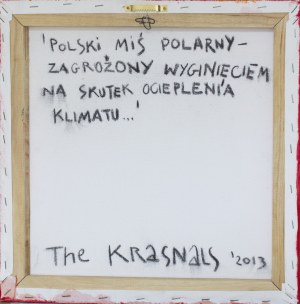 'POLSKI MIŚ POLARNY –
ZAGROŻONY WYGINIĘCIEM
NA SKUTEK OCIEPLENIA
KLIMATU...'
The KRASNALS '2013